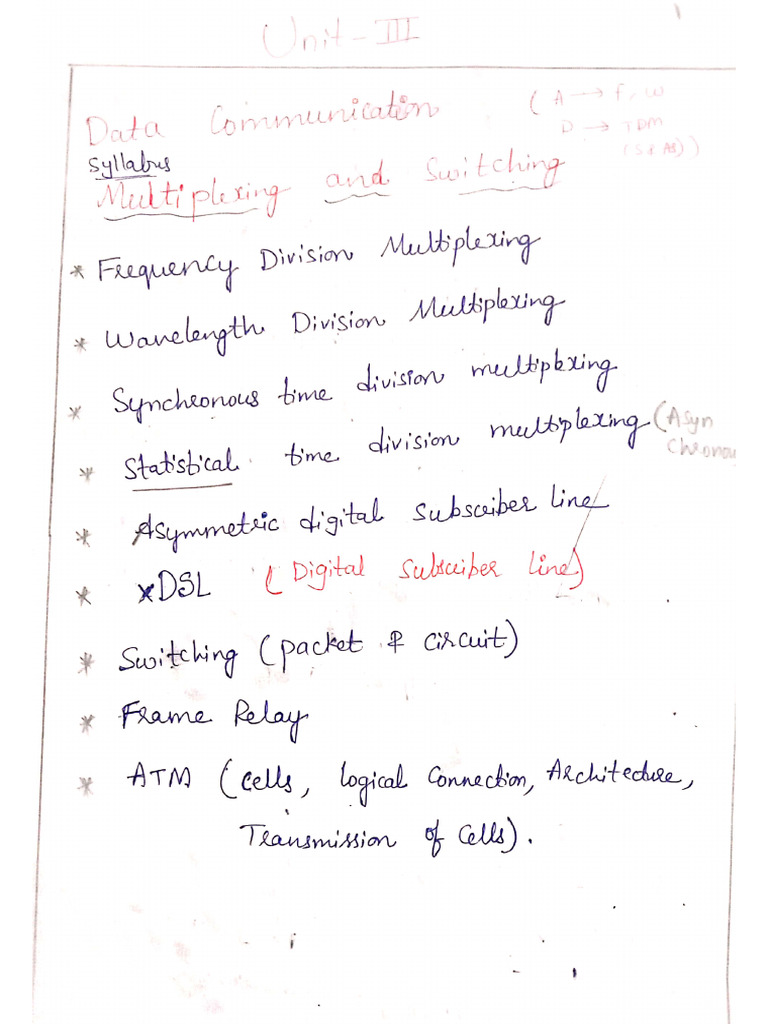 Unit - III
Data Communication
( A → F, W
D → TDM
(S & AS) )
Syllabus
Multiplexing and Switching
* Frequency Division Multiplexing
* Wavelength Division Multiplexing
* Synchronous time division multiplexing
* Statistical time division multiplexing (Asyn
chronou
* Asymmetric digital Subscriber line
* xDSL (Digital Subscriber line)
* Switching (packet & circuit)
* Frame Relay
* ATM (cells, logical Connection, Architecture,
Transmission of cells).